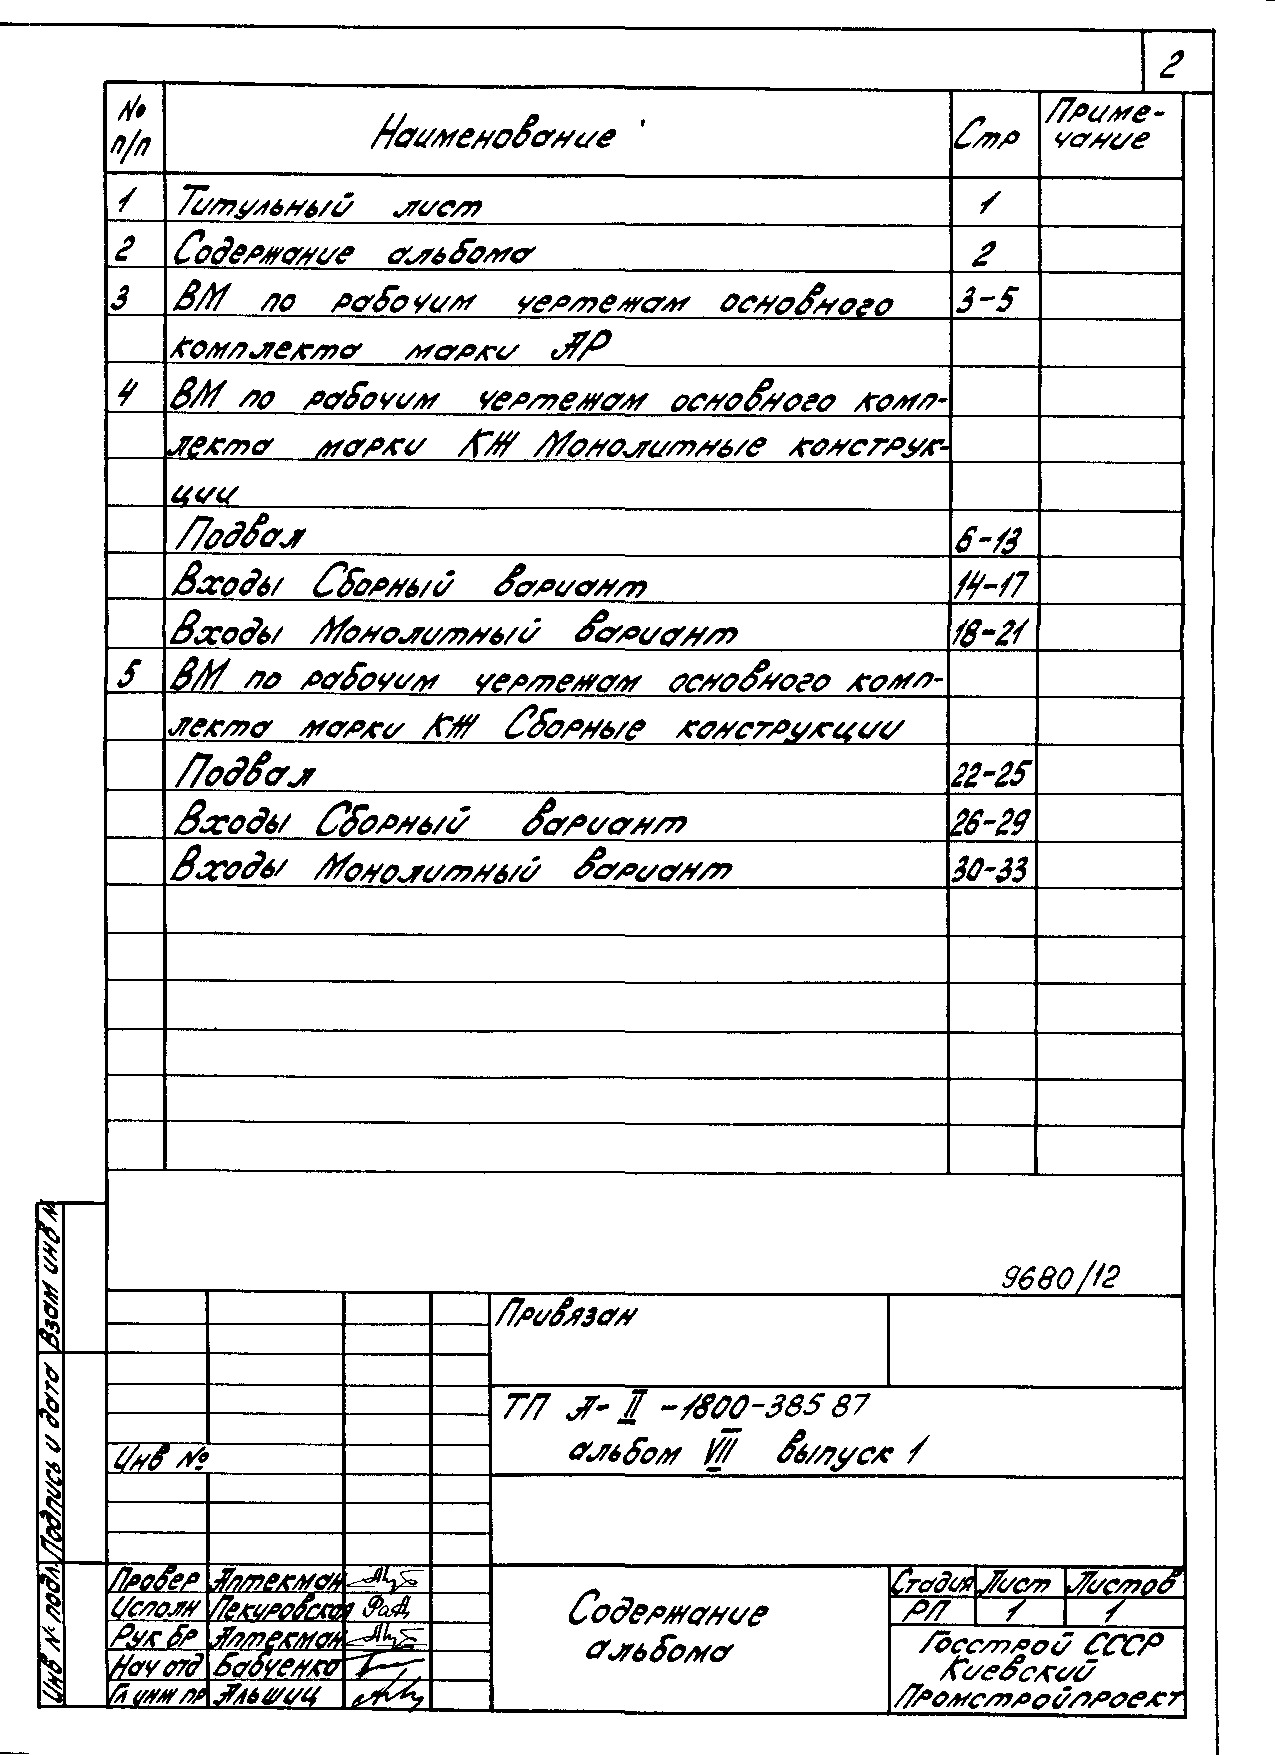 2
№ п/п Наименование Стр Приме-
чание
1 Титульный лист 1
2 Содержание альбома 2
3 ВМ по рабочим чертежам основного 3-5
комплекта марки АР
4 ВМ по рабочим чертежам основного комп-
лекта марки КЖ Монолитные конструк-
ции
Подвал 6-13
Входы Сборный вариант 14-17
Входы Монолитный вариант 18-21
5 ВМ по рабочим чертежам основного комп-
лекта марки КЖ Сборные конструкции
Подвал 22-25
Входы Сборный вариант 26-29
Входы Монолитный вариант 30-33
9680/12
Привязан
ТП А-II-1800-385 87
альбом VII выпуск 1
Инв №
Провер Аптекман
Исполн Пекуровская
Рук бр Аптекман
Нач отд Бабченко
Гл инж пр Альшиц
Содержание
альбома
Стадия Лист Листов
РП 1 1
Госстрой СССР
Киевский
Промстройпроект
Взам инв №
Подпись и дата
Инв № подл.